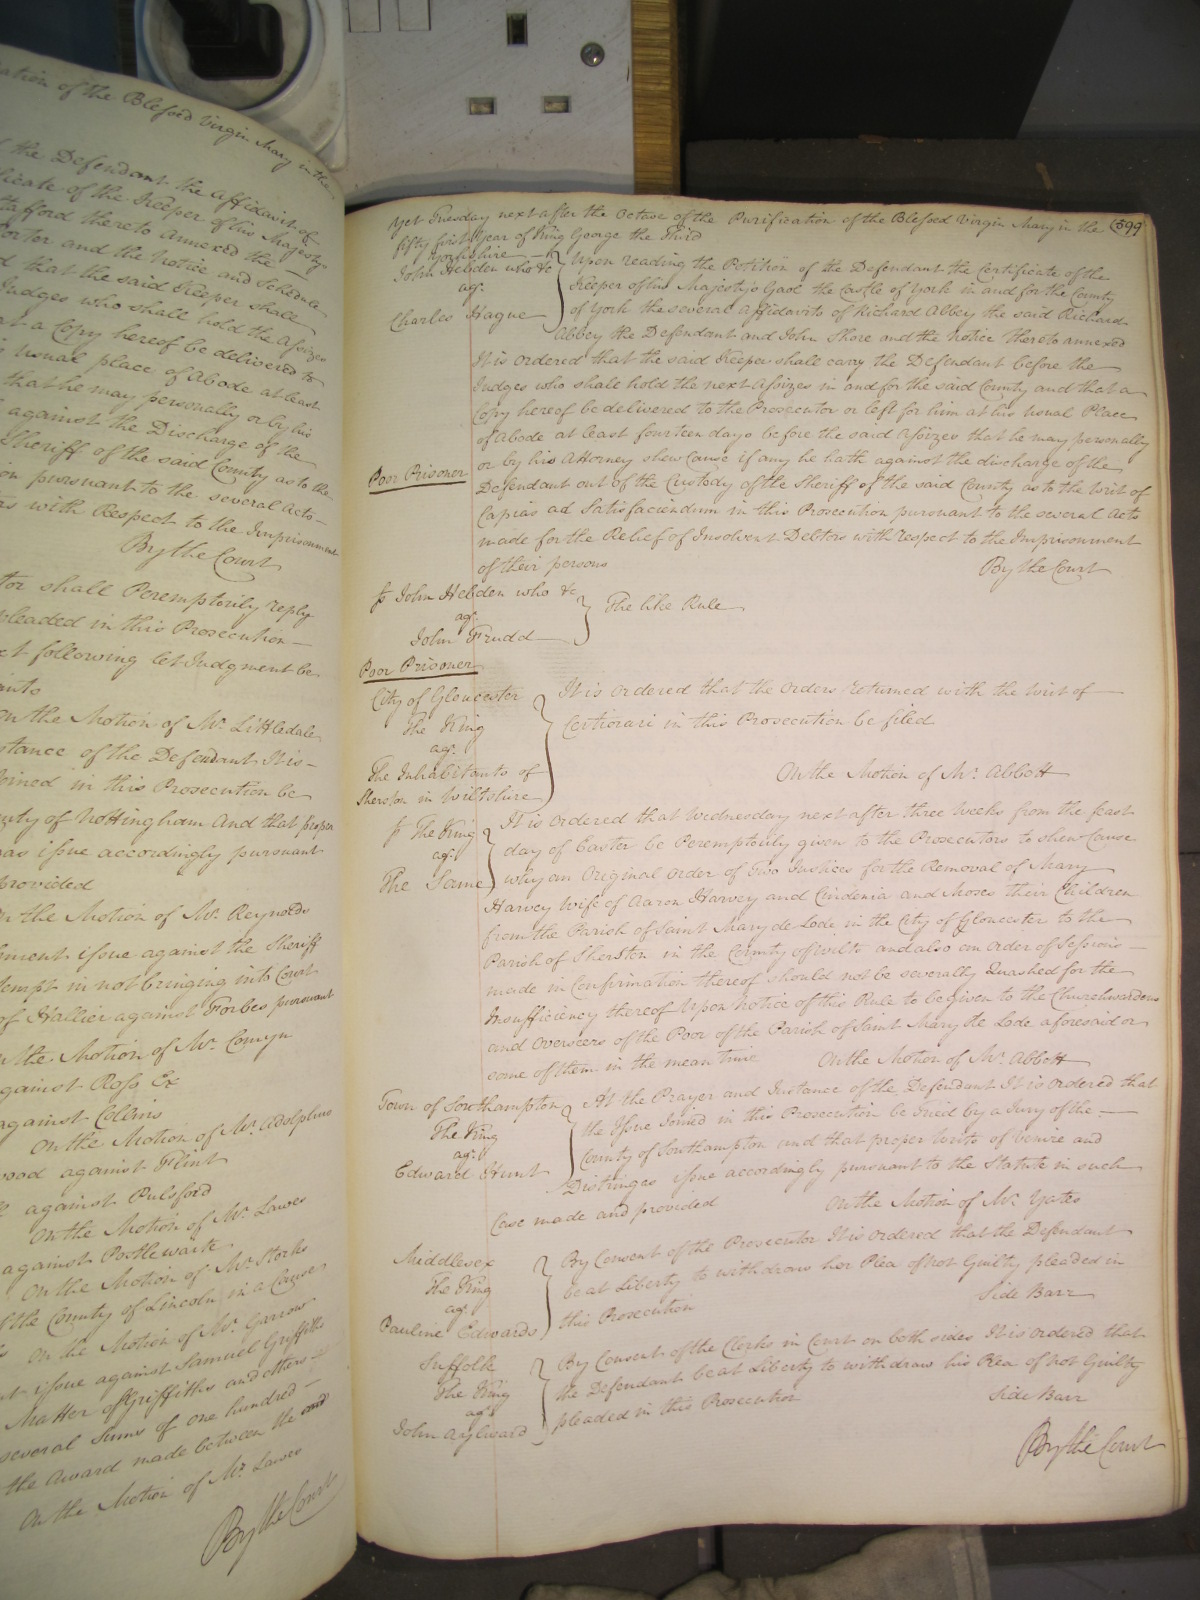 ation of the Blessed Virgin Mary in the
the Defendant the Affidavit of
ificate of the Keeper of his Majestys
tafford thereto annexed the
orter and the Notice and Schedule
d that the said Keeper shall
Judges who shall hold the Assizes
at a Copy hereof be delivered to
s usual place of Abode at least
that he may personally or by his
against the Discharge of the
Sheriff of the said County as to the
on pursuant to the several Acts
rs with Respect to the Imprisonment
By the Court
tor shall Peremptorily reply
pleaded in this Prosecution
xt following let Judgment be
ants
On the Motion of Mr. Littledale
stance of the Defendant It is
Joined in this Prosecution be
unty of Nottingham And that proper
as issue accordingly pursuant
provided
On the Motion of Mr. Reynolds
hment issue against the Sheriff
tempt in not bringing into Court
of Hallier against Forbes pursuant
On the Motion of Mr. Comyn
against Ross Ex
against Collins
On the Motion of Mr. Adolphus
wood against Flint
against Pulsford
On the Motion of Mr. Lawes
against Postlewaite
On the Motion of Mr. Storks
of the County of Lincoln in a Cause
On the Motion of Mr. Garrow
nt issue against Samuel Griffiths
Matter of Griffiths and others
several Sums of one hundred
the Award made between the said
On the Motion of Mr. Lawes
By the Court
Yet Tuesday next after the Octave of the Purification of the Blessed Virgin Mary in the 599
fifty first Year of King George the Third
Yorkshire
John Hebden who &c
agt.
Charles Hague
Upon reading the Petition of the Defendant the Certificate of the
Keeper of his Majesty's Gaol the Castle of York in and for the County
of York the several Affidavits of Richard Abbey the said Richard
Abbey the Defendant and John Shore and the Notice thereto annexed
It is ordered that the said Keeper shall carry the Defendant before the
Judges who shall hold the next Assizes in and for the said County and that a
Copy hereof be delivered to the Prosecutor or left for him at his usual Place
of Abode at least fourteen days before the said Assizes that he may personally
or by his Attorney shew Cause if any he hath against the discharge of the
Poor Prisoner
Defendant out of the Custody of the Sheriff of the said County as to the Writ of
Capias ad Satisfaciendum in this Prosecution pursuant to the several Acts
made for the Relief of Insolvent Debtors with respect to the Imprisonment
of their persons By the Court
John Hebden who &c
agt.
John Frudd
The like Rule
Poor Prisoner
City of Gloucester
The King
agt.
The Inhabitants of
Sherston in Wiltshire
It is ordered that the Orders returned with the Writ of
Certiorari in this Prosecution be filed
On the Motion of Mr. Abbott
The King
agt.
The Same
It is Ordered that Wednesday next after three Weeks from the feast
day of Easter be Peremptorily given to the Prosecutors to shew Cause
why an Original Order of Two Justices for the Removal of Mary
Harvey Wife of Aaron Harvey and Cindenia and Moses their Children
from the Parish of Saint Mary de Lode in the City of Gloucester to the
Parish of Sherston in the County of Wilts and also an Order of Sessions
made in Confirmation thereof should not be severally Quashed for the
Insufficiency thereof Upon Notice of this Rule to be given to the Churchwardens
and Overseers of the Poor of the Parish of Saint Mary de Lode aforesaid or
some of them in the mean time On the Motion of Mr. Abbott
Town of Southampton
The King
agt.
Edward Hunt
At the Prayer and Instance of the Defendant It is Ordered that
the Issue Joined in this Prosecution be tried by a Jury of the
County of Southampton and that proper Writs of Venire and
Distringas issue accordingly pursuant to the Statute in such
Case made and provided On the Motion of Mr. Yates
Middlesex
The King
agt.
Pauline Edwards
By Consent of the Prosecutor It is ordered that the Defendant
be at Liberty to withdraw her Plea of Not Guilty pleaded in
this Prosecution Side Barr
Suffolk
The King
agt.
John Aylward
By Consent of the Clerks in Court on both sides It is ordered that
the Defendant be at Liberty to withdraw his Plea of Not Guilty
pleaded in this Prosecution Side Barr
By the Court